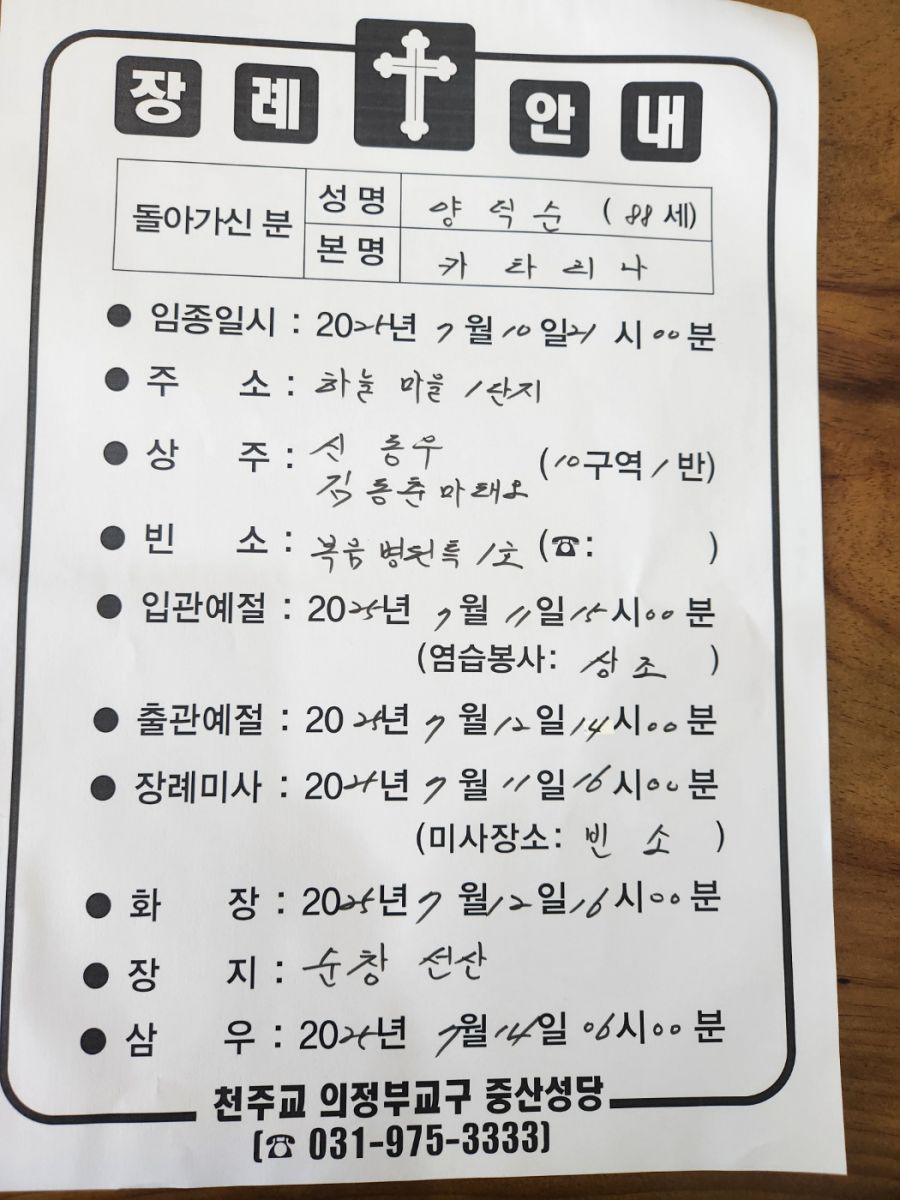 장례 안내
돌아가신 분 성명 양덕순 (88세)
본명 카타리나
● 임종일시 : 2025년 7월 10일 21시 00분
● 주 소 : 하늘 마을 1단지
● 상 주 : 신동우
김동춘 마태오 (10구역 1반)
● 빈 소 : 복음병원특 1호 (☎: )
● 입관예절 : 2025년 7월 11일 15시 00분
(염습봉사: 상조 )
● 출관예절 : 2025년 7월 12일 14시 00분
● 장례미사 : 2025년 7월 11일 16시 00분
(미사장소: 빈소 )
● 화 장 : 2025년 7월 12일 16시 00분
● 장 지 : 순창 선산
● 삼 우 : 2025년 7월 14일 06시 00분
천주교 의정부교구 중산성당
(☎ 031-975-3333)